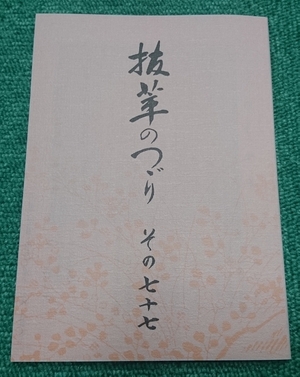 抜萃のつゞり
その七十七